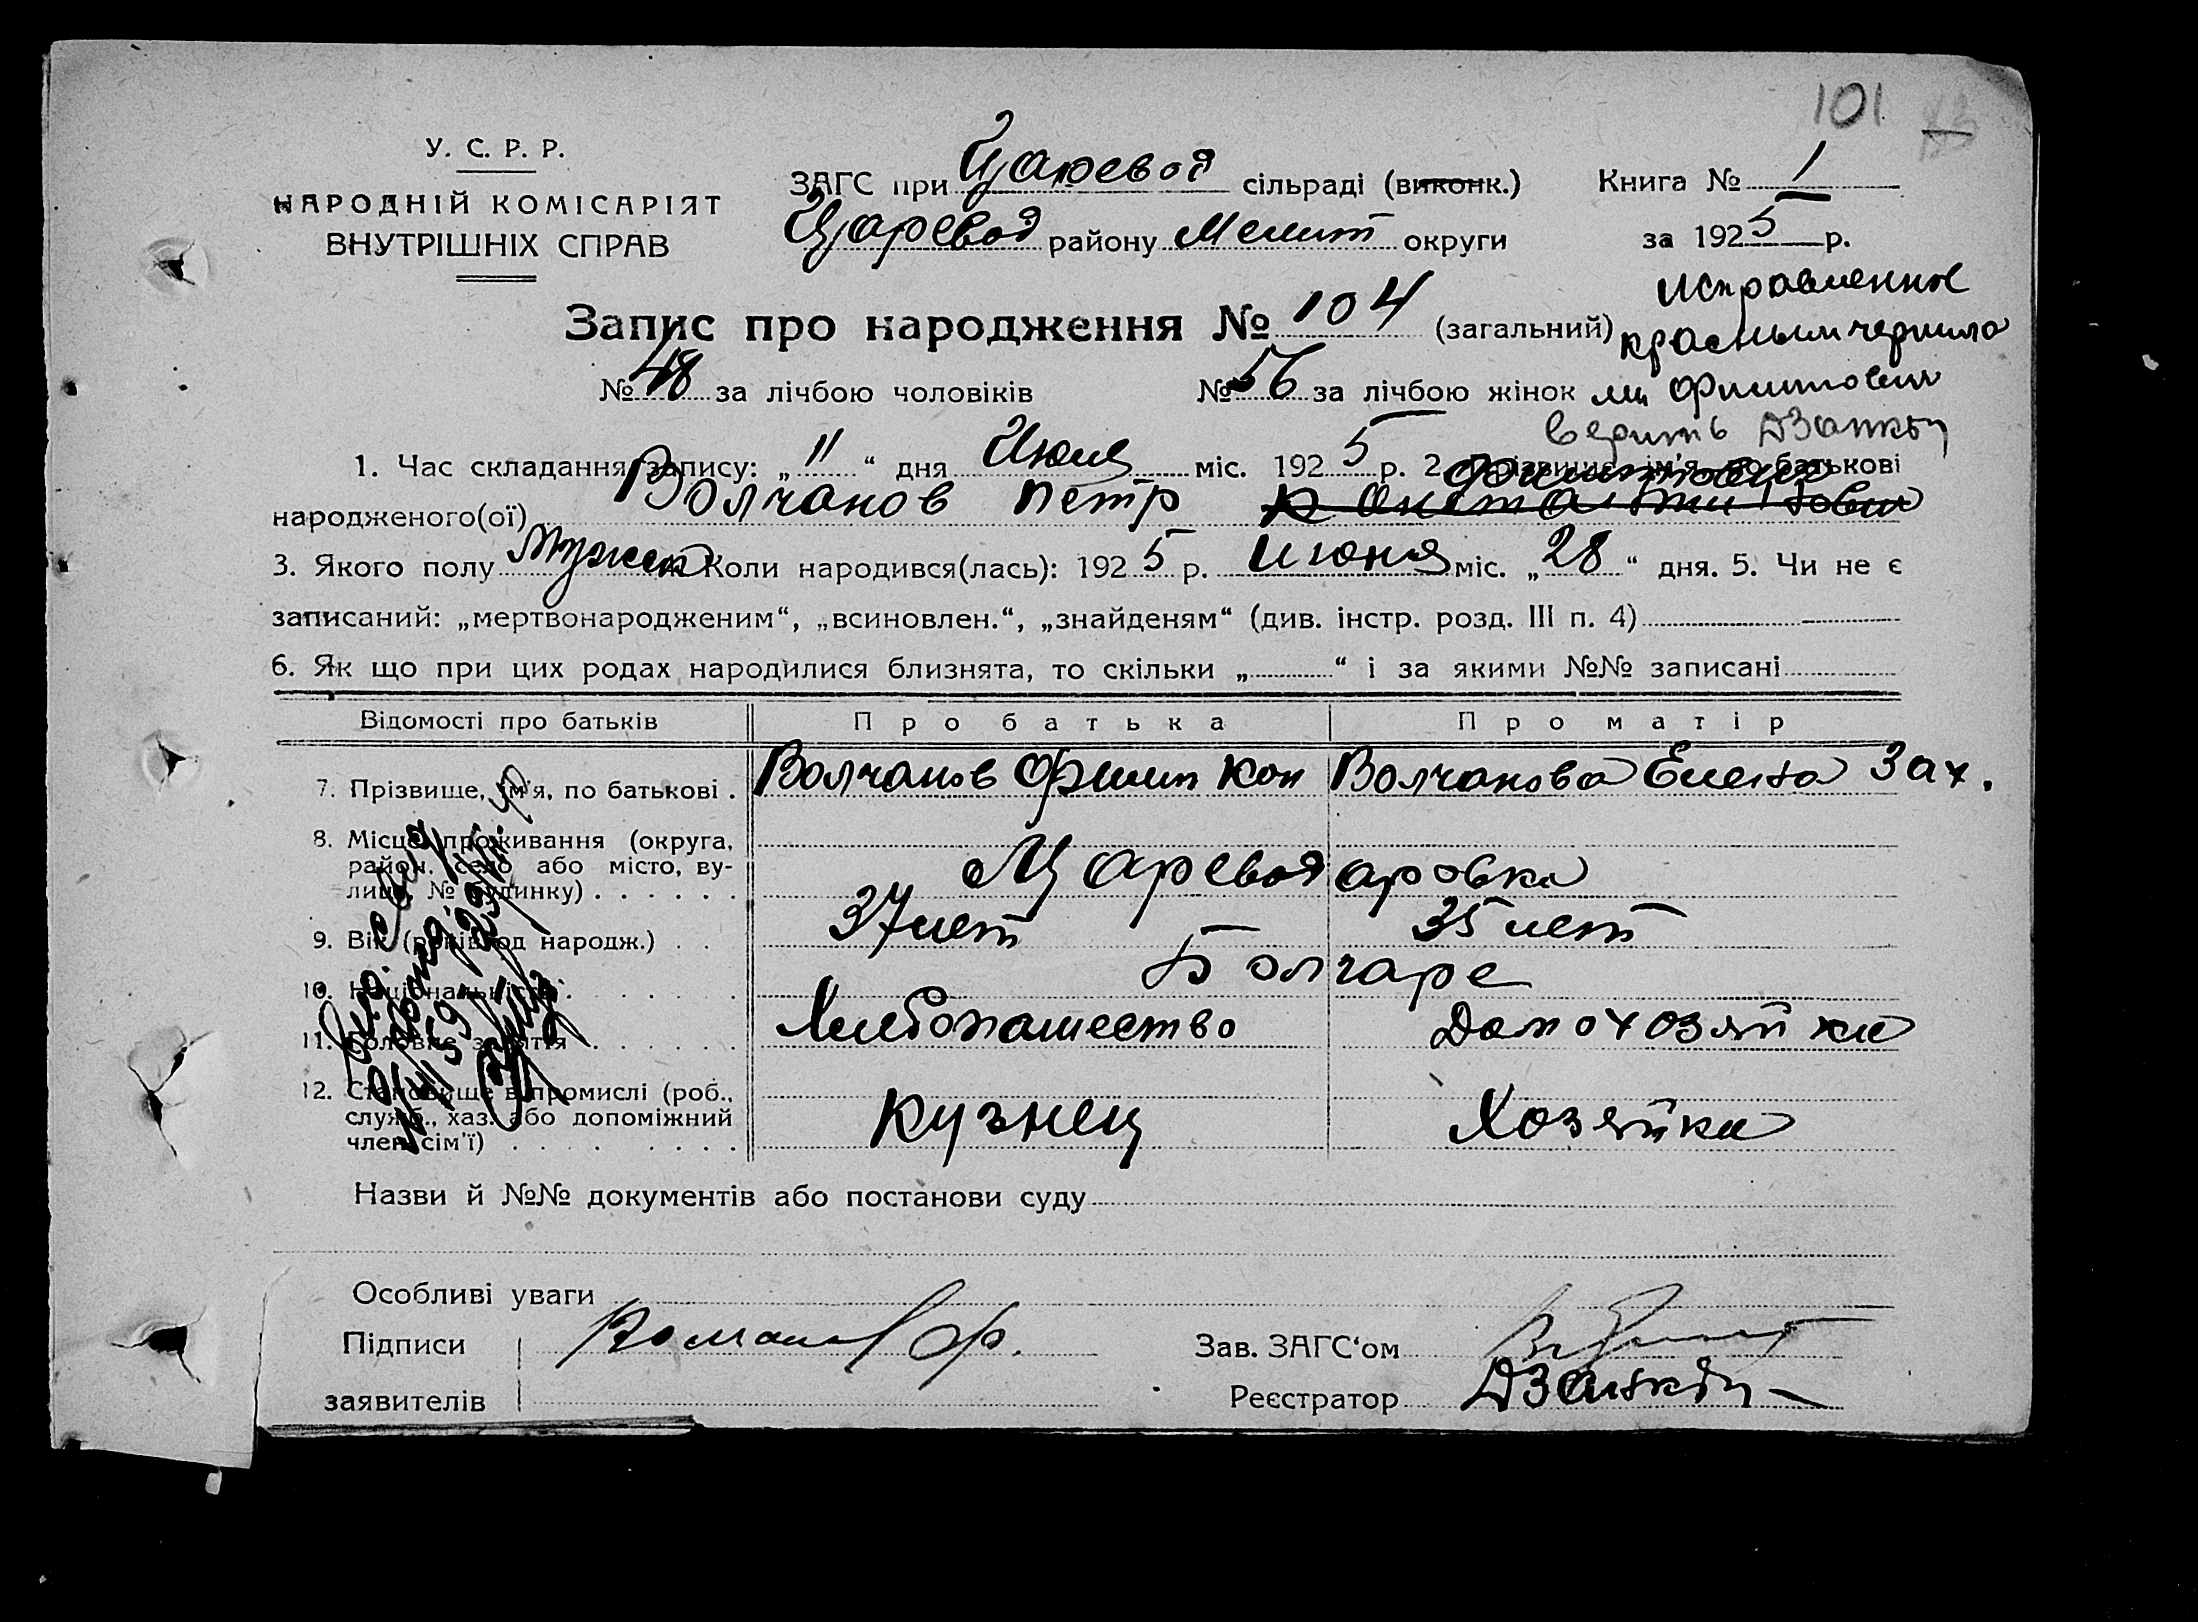 101
У. С. Р. Р.
НАРОДНІЙ КОМІСАРІЯТ
ВНУТРІШНІХ СПРАВ
ЗАГС при Царевод сільраді (виконк.)
Царевод району Мелит округи
Книга № 1
за 1925 р.
Запис про народження № 104 (загальний)
№ 48 за лічбою чоловіків № 56 за лічбою жінок
Исправленное
красными чернила
ми Филиппович
верить
1. Час складання запису: „11“ дня Июля міс. 1925 р. 2. Прізвище, ім'я, по батькові
Филиппович
народженого(ої) Волчанов Петр Константинович
3. Якого полу Мужск Коли народився(лась): 1925 р. Июня міс. „28“ дня. 5. Чи не є
записаний: „мертвонародженим“, „всиновлен.“, „знайденям“ (див. інстр. розд. III п. 4)
6. Як що при цих родах народилися близнята, то скільки „ “ і за якими №№ записані
Відомості про батьків Про батька Про матір
7. Прізвище, ім'я, по батькові . Волчанов Филип Кон Волчанова Елена Зах.
8. Місце проживання (округа,
район, село або місто, ву-
лиця, № будинку) . . . . . . Цареводаровка
9. Вік (років, од народж.) . . 37 лет 35 лет
10. Національність . . . . . . Болгаре
11. Головне заняття . . . . . . Хлебопашество Домохозяйка
12. Становище в промислі (роб.,
служб., хаз. або допоміжний
член сім'ї) . . . . . . . . Кузнец Хозяйка
Назви й №№ документів або постанови суду
Особливі уваги
Підписи
заявителів
Зав. ЗАГС'ом
Реєстратор